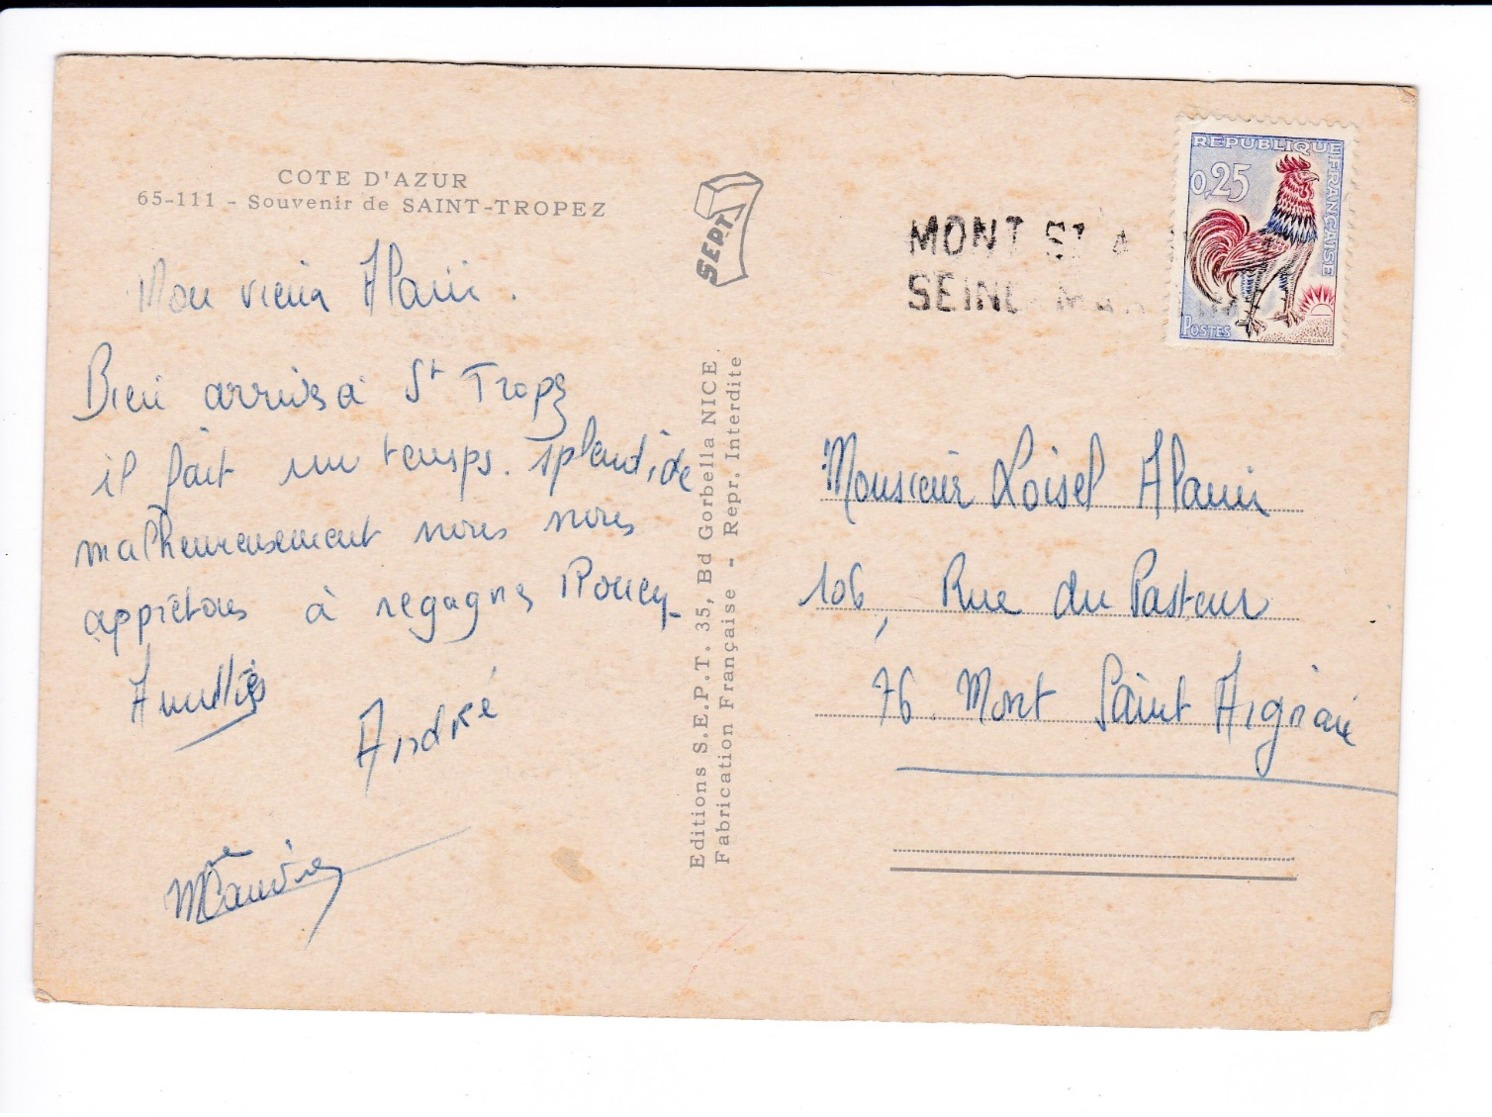 COTE D'AZUR
65-111 - Souvenir de SAINT-TROPEZ
Mon vieux Alain.
Bien arrivés à St Tropez
il fait un temps splendide
malheureusement nous nous
apprêtons à regagner Rouen
Amitiés
André
Editions S.E.P.T. 35, Bd Gorbella NICE.
Fabrication Française - Repr. Interdite
SEPT
MONT ST A
SEINE MAR
REPUBLIQUE FRANÇAISE
0,25
POSTES
DECARIS
Monsieur Loisel Alain
106, Rue du Pasteur
76 Mont Saint Aignan